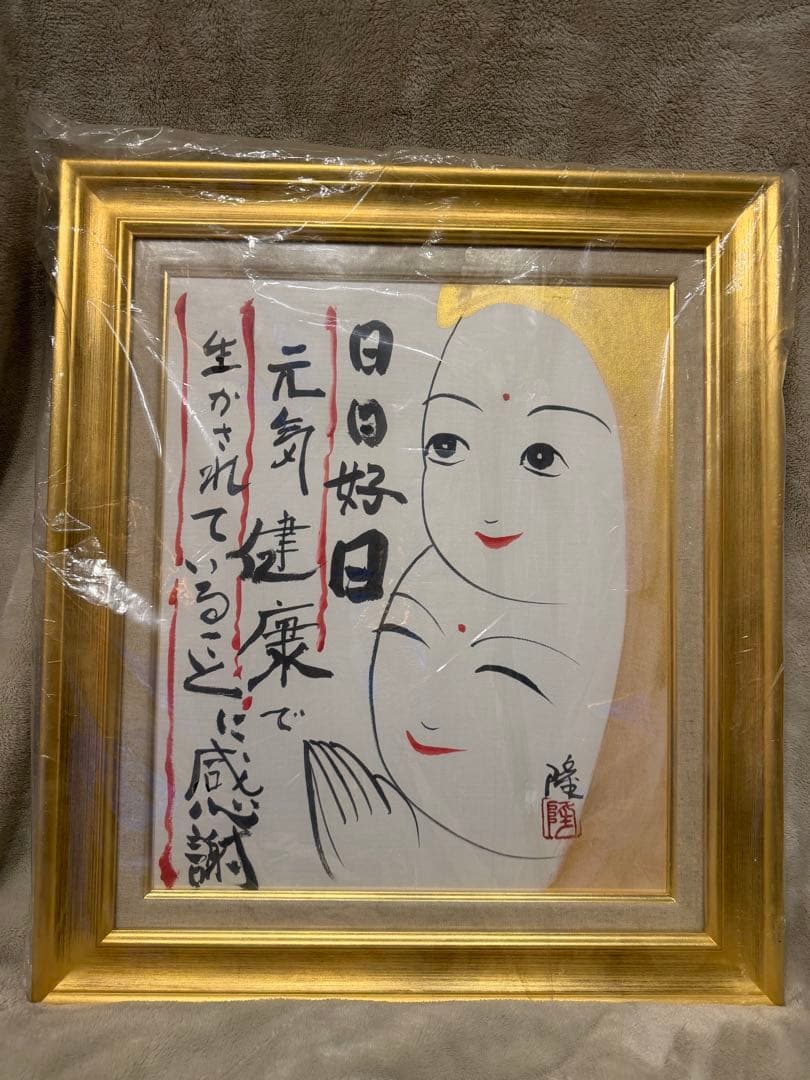 日日好日
元気健康で
生かされていることに感謝
隆
隆